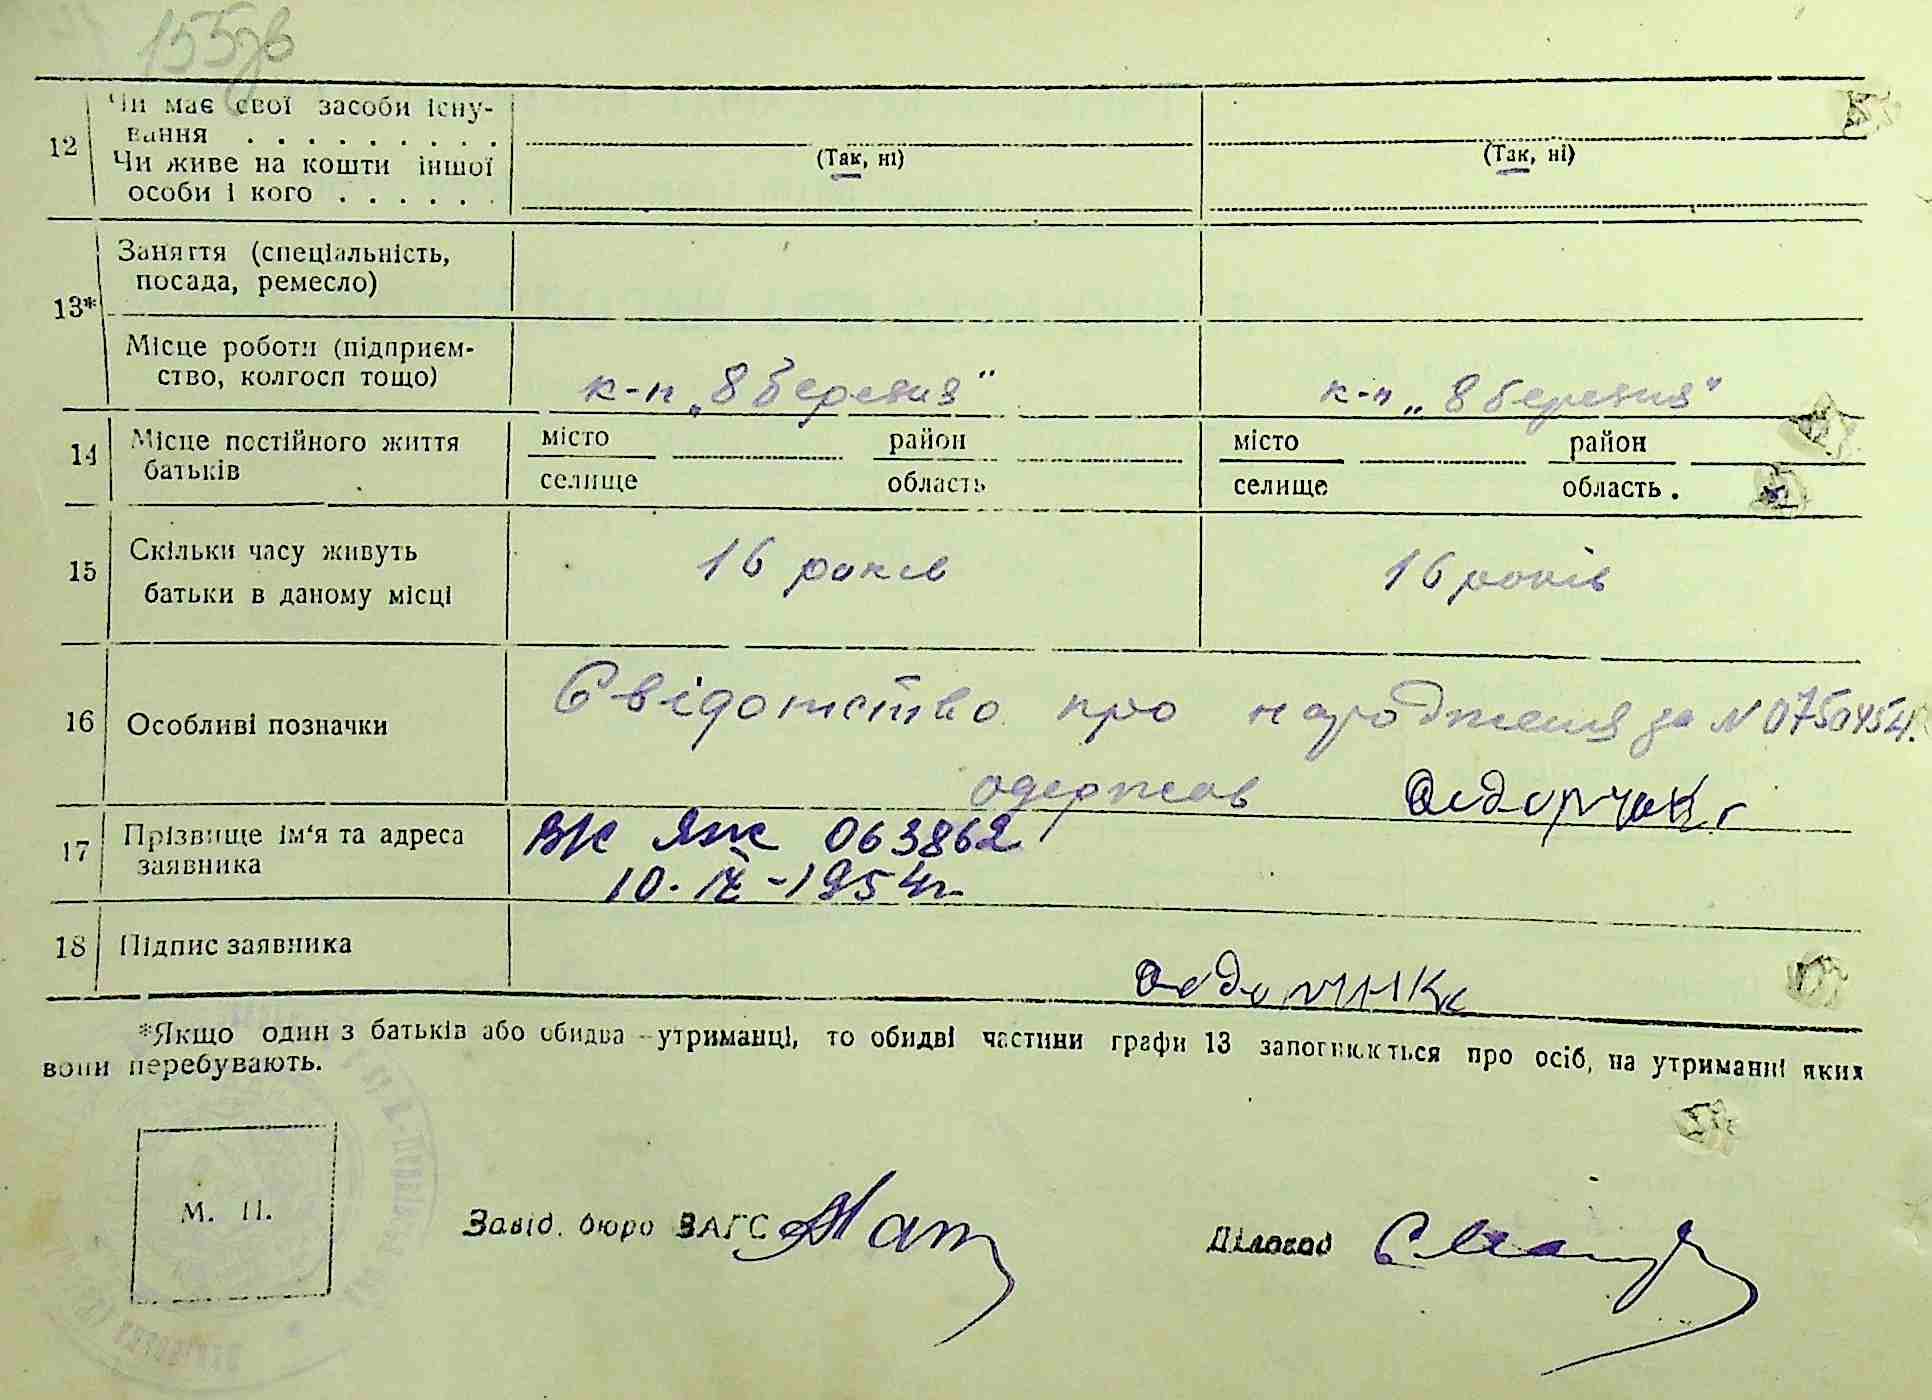 155зв
12 Чи має свої засоби існу-
вання . . . . . . . . .
(Так, ні) (Так, ні)
Чи живе на кошти іншої
особи і кого . . . . . .
13* Заняття (спеціальність,
посада, ремесло)
Місце роботи (підприєм-
ство, колгосп тощо) к-п „8 березня" к-п „8 березня"
14 Місце постійного життя
батьків
місто район місто район
селище область селище область .
15 Скільки часу живуть
батьки в даному місці
16 років 16 років
16 Особливі позначки
Свідотство про народження за N 0750454.
одержав
17 Прізвище ім'я та адреса
заявника
ЯЖ 063862
10-IX-1954г
18 Підпис заявника
*Якщо один з батьків або обидва -утриманці, то обидві частини графи 13 заповнюються про осіб, на утриманні яких
вони перебувають.
М. П.
Завід. бюро ЗАГС Діловод